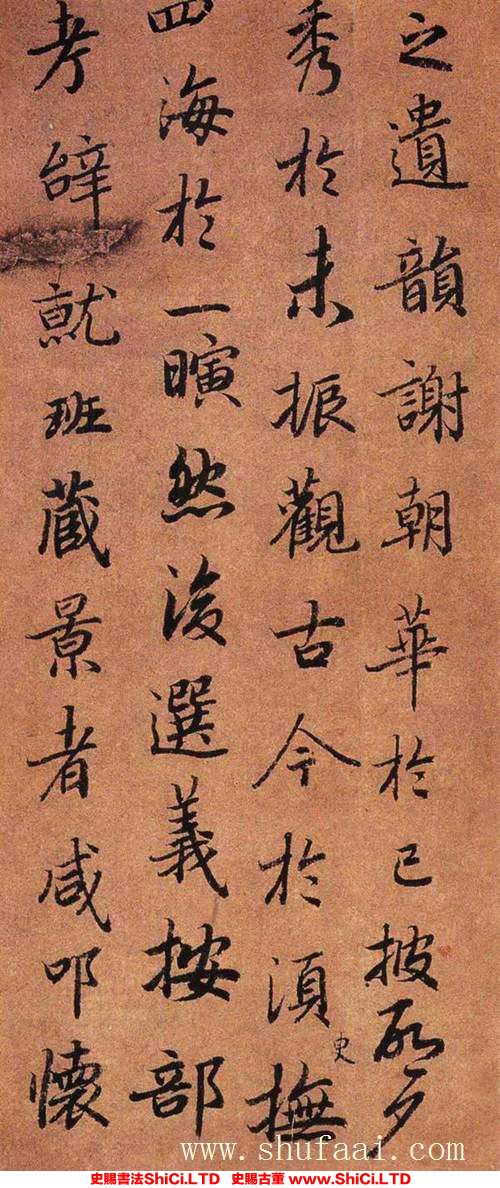 之遺韻謝朝華於已披啓夕
秀於未振觀古今於須史撫
四海於一瞚然後選義按部
考辭就班藏景者咸叩懷
www.shufaai.com
史賜書法ShiCi.LTD 史賜古董 www.ShiCi.LTD